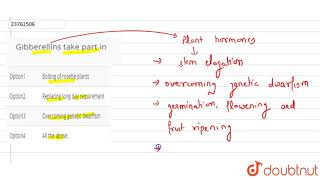 23762506
Gibberellins take part in
Option1 Bolting of rosette plants
Option2 Replacing long day requirement
Option3 Overcoming genetic dwarfism
Option4 All the above.
Plant hormones
→ stem elogation
→ overcoming genetic dwarfism
→ germination, flowering and
fruit ripening
→
doubtnut